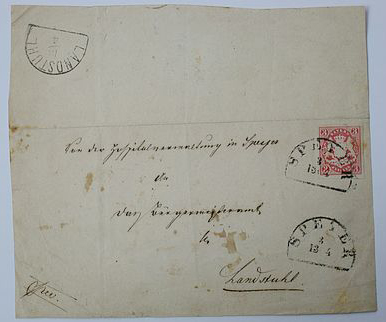 LANDSTUHL
Von der Hospitalverwaltung in Speyer
an
das Bürgermeisteramt
in
Landstuhl
SPEYER
3
SPEYER
13 4